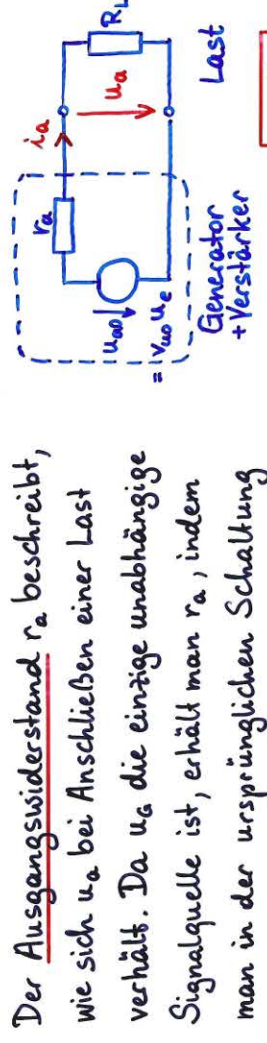 Der Ausgangswiderstand rₐ beschreibt,
wie sich uₐ bei Anschließen einer Last
verhält. Da u_G die einzige unabhängige
Signalquelle ist, erhält man rₐ, indem
man in der ursprünglichen Schaltung
rₐ
iₐ
uₐ₀
= vᵤ₀ uₑ
uₐ
R_L
Generator
+ Verstärker
Last